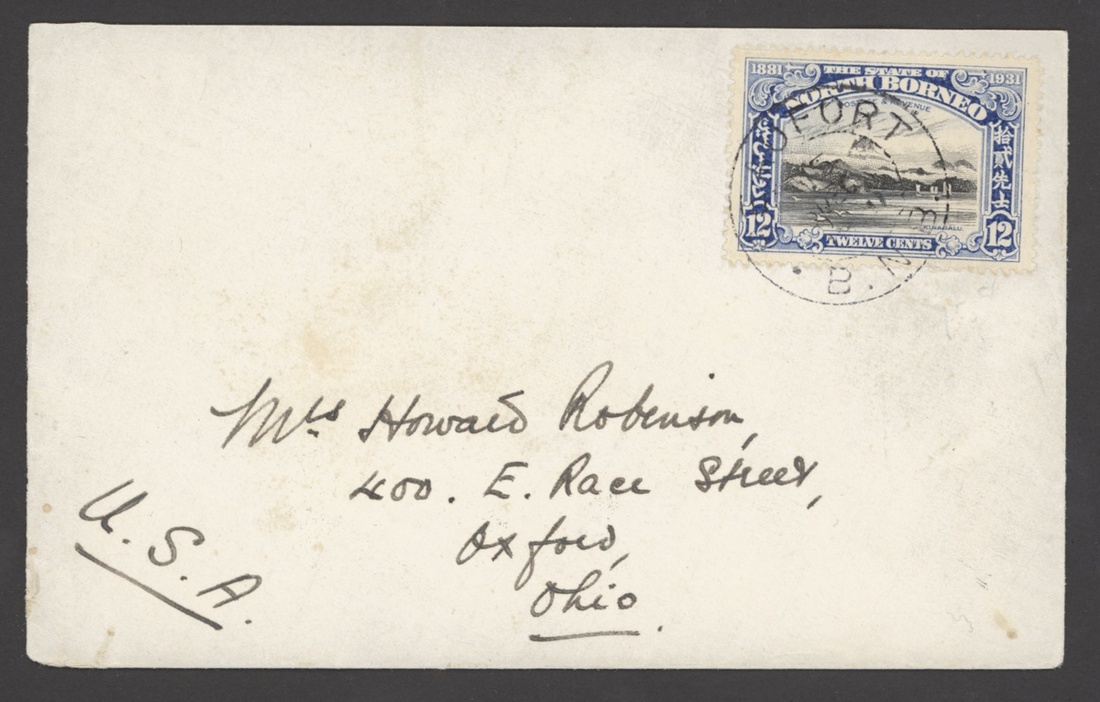 1881 THE STATE OF 1931
NORTH BORNEO
POSTAGE & REVENUE
拾貳先士
KINABALU
12 TWELVE CENTS 12
OFORT
N. B.
Mrs Howard Robinson,
400. E. Race Street,
Oxford,
Ohio.
U.S.A.